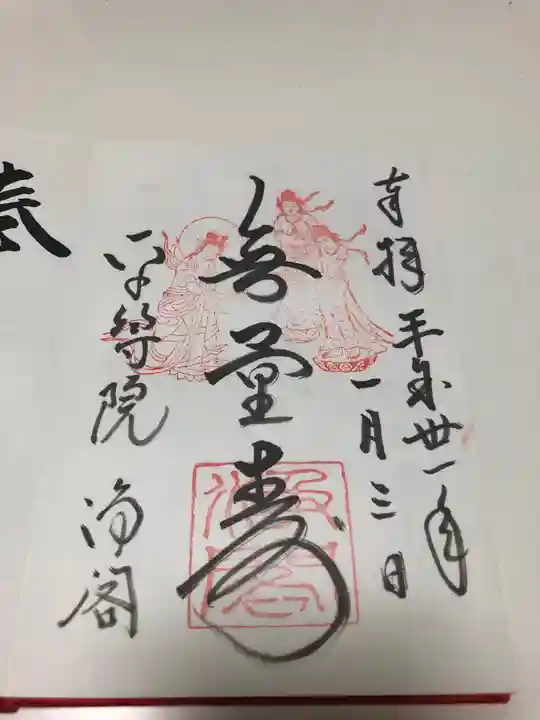 奉拝 平成卅一年
一月三日
無量寿
平等院 浄閣